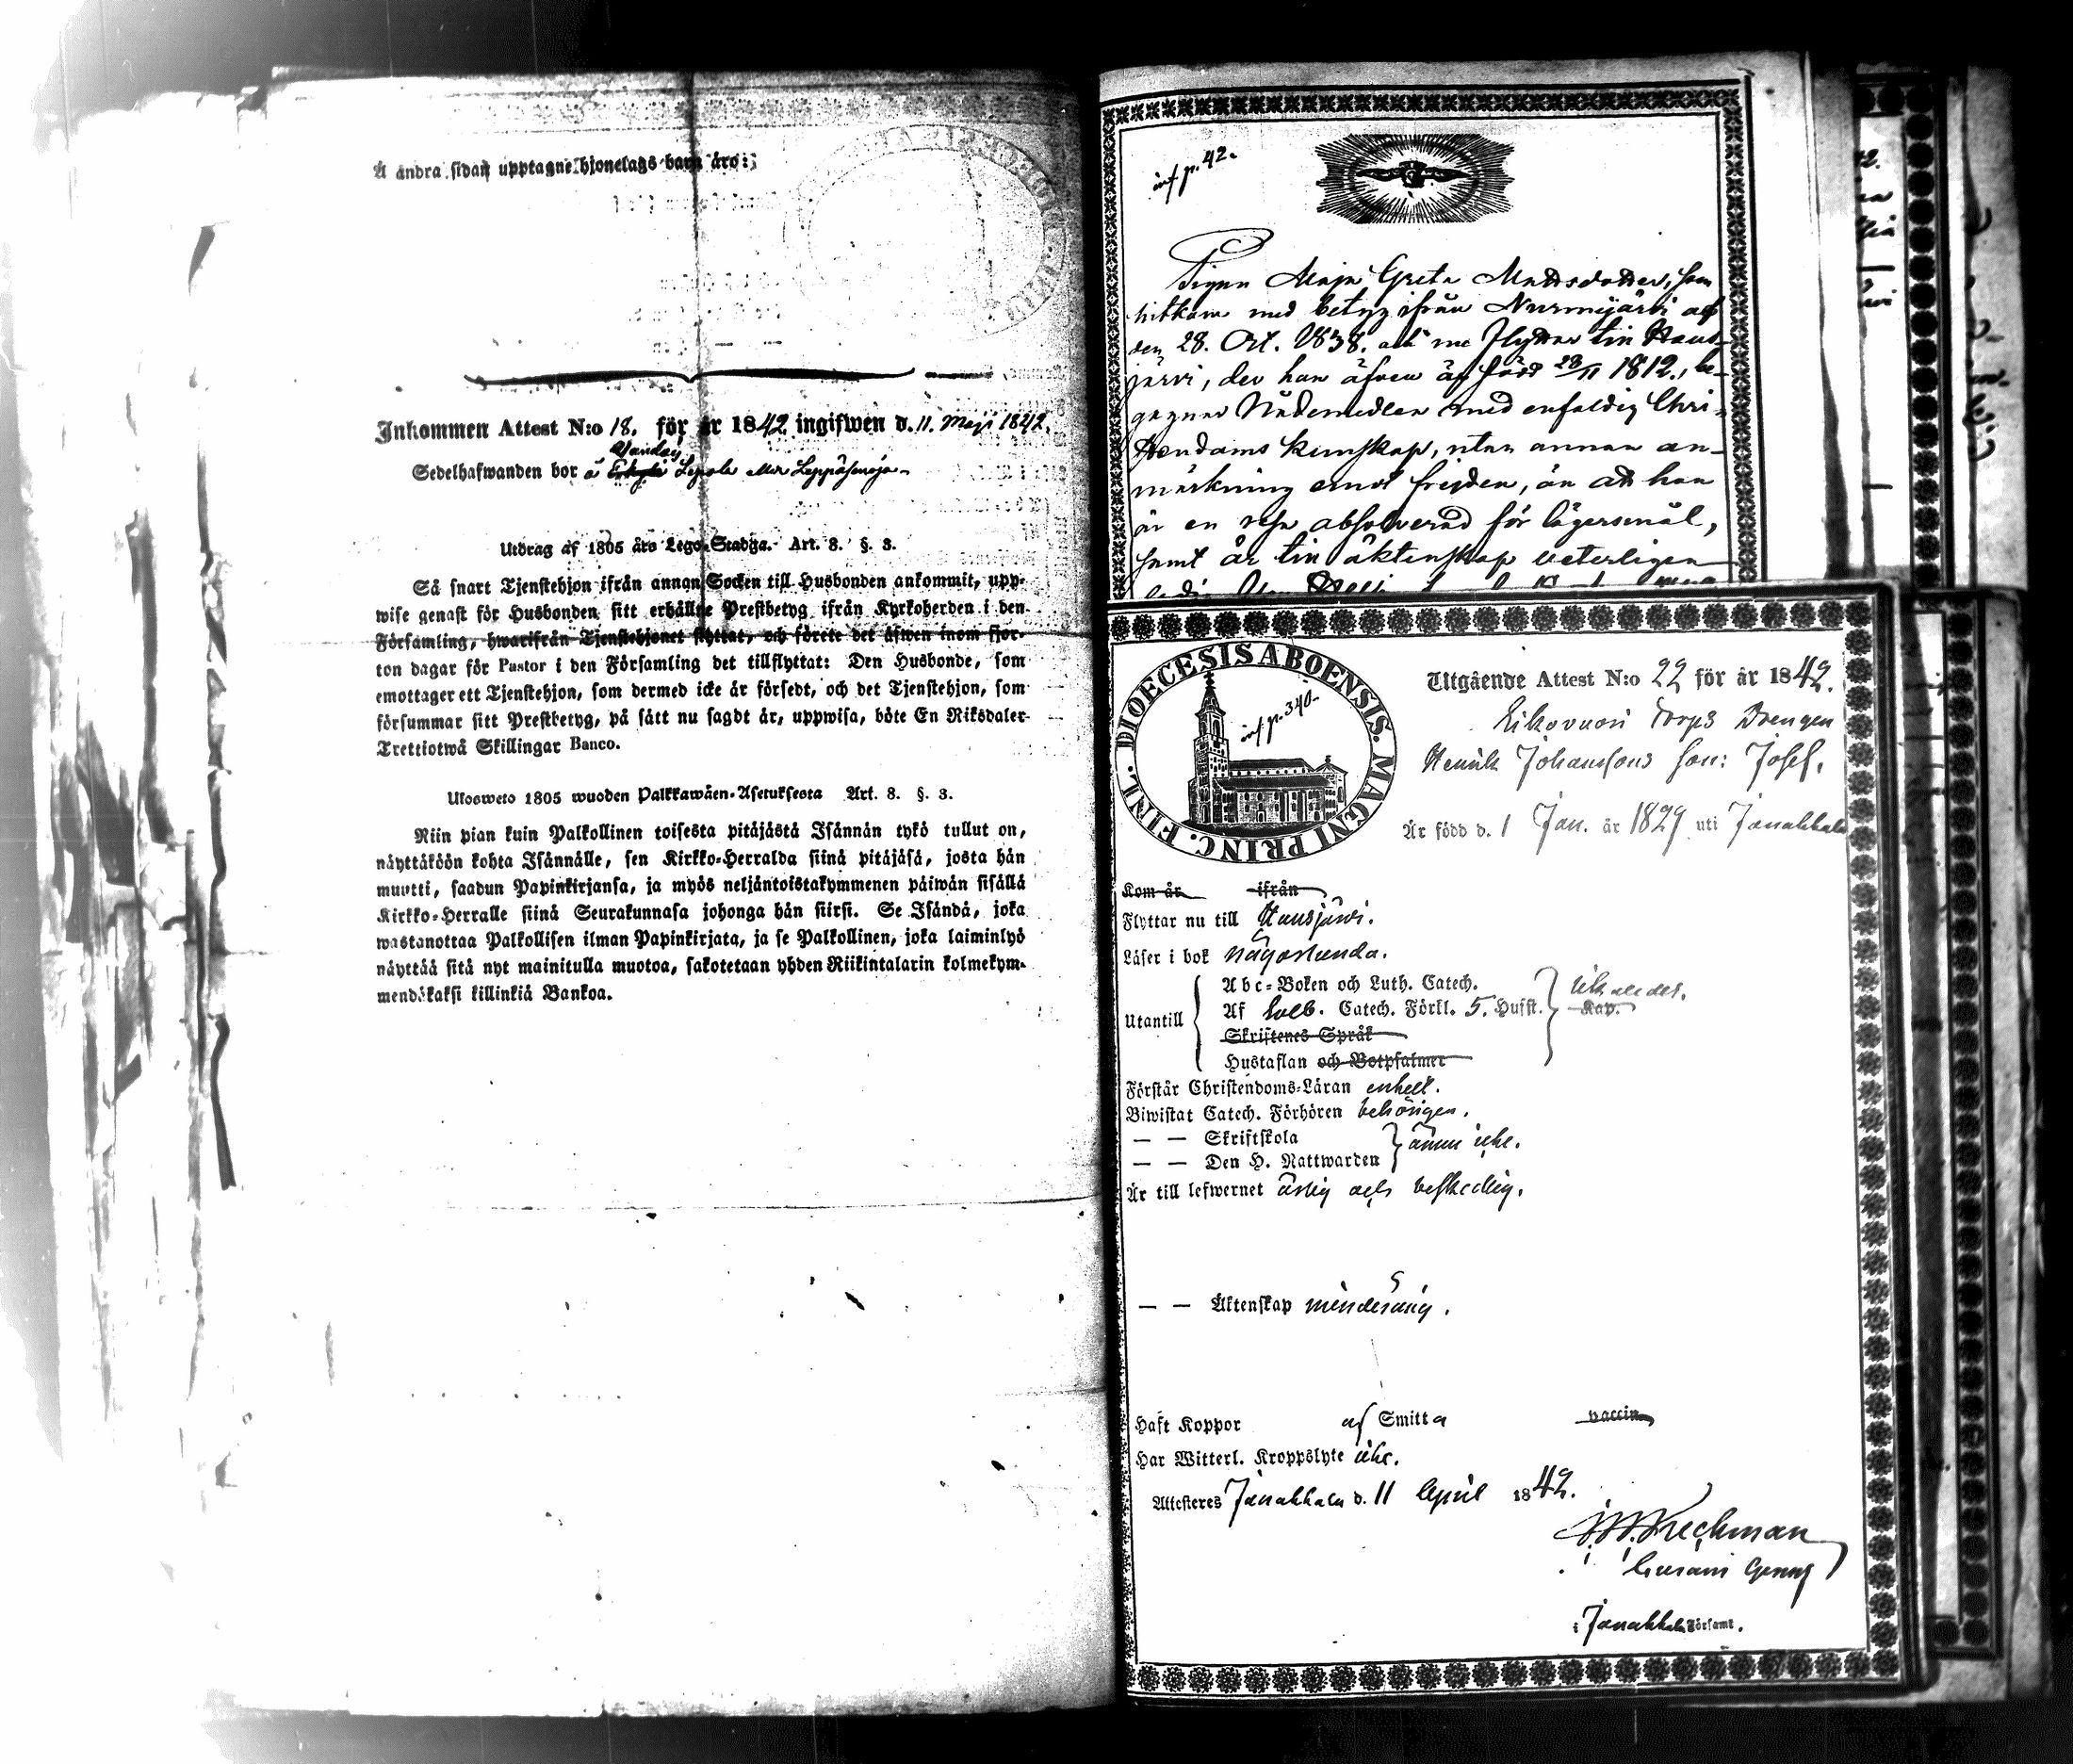 Å andra sidan upptagne hjonelags barn äro:
Inkommen Attest N:o 18. för år 1842 ingifwen d. 11. Maji 1842.
Sedelhafwanden bor å Lepola eller Leppäsenoja
Utdrag af 1805 års Lego-Stadga. Art. 8. §. 3.
Så snart Tjenstehjon ifrån annan Socken till Husbonden ankommit, upp-
wise genast för Husbonden sitt erhållne Prestbetyg ifrån Kyrkoherden i den
Församling, hwarifrån Tjenstehjonet flyttat, och förete det äfwen inom fjor-
ton dagar för Pastor i den Församling det tillflyttat: Den Husbonde, som
emottager ett Tjenstehjon, som dermed icke är försedt, och det Tjenstehjon, som
försummar sitt Prestbetyg, på sätt nu sagdt är, uppwisa, böte En Riksdaler
Trettiotwå Skillingar Banco.
Ulosweto 1805 wuoden Palkkawäen-Asetuksesta Art. 8. §. 3.
Niin pian kuin Palkollinen toisesta pitäjästä Isännän tykö tullut on,
näyttäköön kohta Isännälle, sen Kirkko-Herralda siinä pitäjäsä, josta hän
muutti, saadun Papinkirjansa, ja myös neljäntoistakymmenen päiwän sisällä
Kirkko-Herralle siinä Seurakunnasa johonga hän siirsi. Se Isändä, joka
wastanottaa Palkollisen ilman Papinkirjata, ja se Palkollinen, joka laiminlyö
näyttää sitä nyt mainitulla muotoa, sakotetaan yhden Riikintalarin kolmekym-
mendäkaksi killinkiä Bankoa.
inf p. 42.
Pigan Maja Greta Mattsdotter, som
hitkom med betyg ifrån Nurmijärvi af
den 28. Oct. 1838. att nu flyttar till Haus-
järvi, der hon äfven är född 28/11 1812., be-
gagnar Nådemedlen med enfaldig Chri-
stendoms kunskap, utan annan an-
märkning emot frejden, än att hon
är en resa absolverad för lägersmål,
samt är till äktenskap veterligen
DIOECESIS ABOENSIS. MAGNI PRINC. FINL.
inf p. 340.
Utgående Attest N:o 22 för år 1842.
torps Drengen
Henrik Johanssons son: Josef.
Är född d. 1 Jan. år 1829 uti Janakkala
Kom år ifrån
Flyttar nu till Hausjärvi.
Läser i bok någorlunda.
Utantill
Abc-Boken och Luth. Catech.
Af Sveb. Catech. Förkl. 5. Hufst. Kap.
Skriftenes Språk
Hustaflan och Botpsalmer
Förstår Christendoms-Läran enkelt.
Biwistat Catech. Förhören behörigen.
— — Skriftskola
— — Den H. Nattwarden
ännu icke.
Är till lefwernet ärlig och beskedlig.
— — Äktenskap minderårig.
Haft Koppor af Smitta vaccin
Har Witterl. Kroppslyte icke.
Attesteres Janakkala d. 11 April 1842.
i Janakkala Församl.